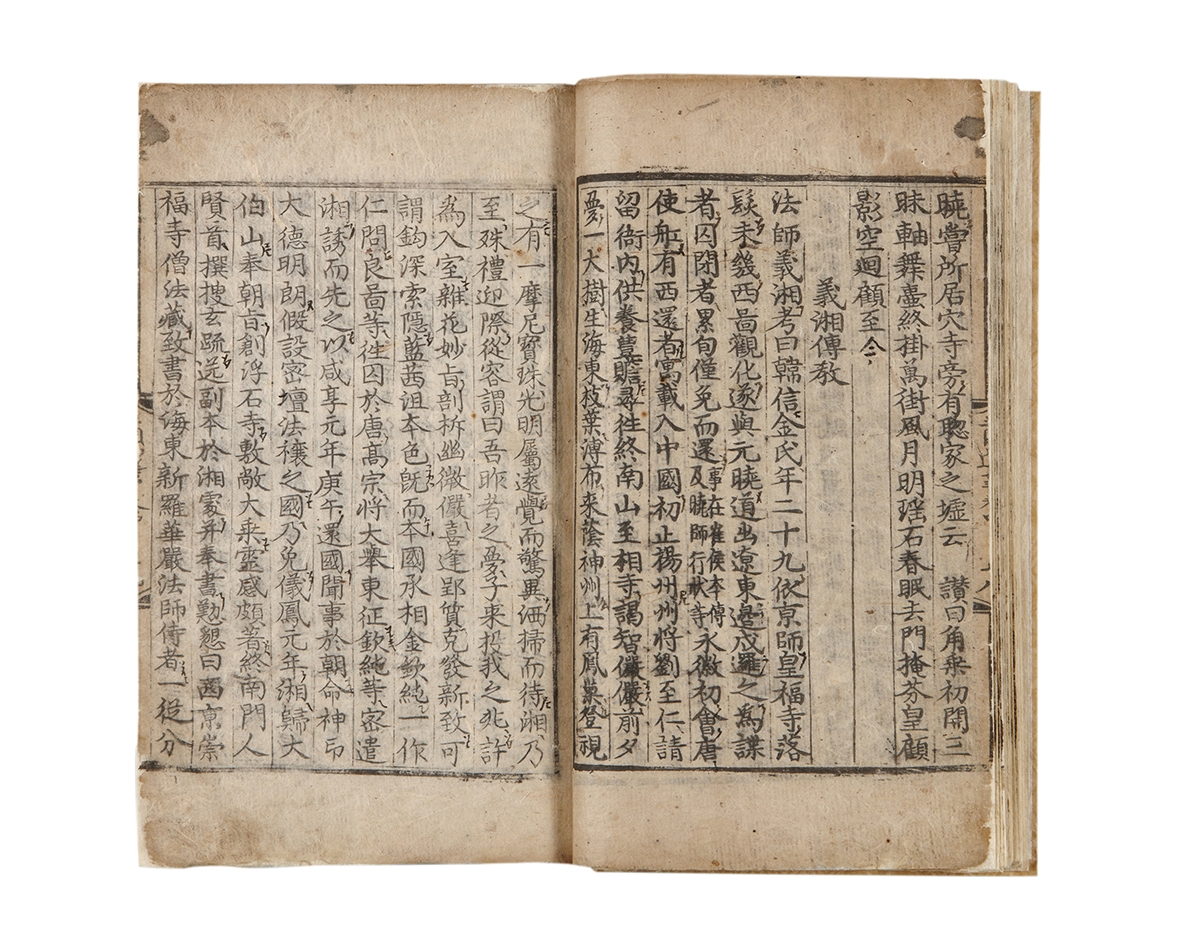 曉嘗所居穴寺旁有聦家之墟云 讃曰角乗初開三
眛軸舞壷終掛萬街風月明瑶石春眠去門掩芬皇顧
影空迴顧至
義湘傳教
法師義湘考曰韓信金氏年二十九依京師皇福寺落
髮未幾西啚觀化遂與元曉道出遼東邉戍邏之爲諜
者囚閉者累旬僅免而還事在崔侯本傳及曉師行狀等永徽初會唐
使舡有西還者寓載入中國初止揚州州將劉至仁請
留衙内供養豊贍尋徃終南山至相寺謁智儼儼前夕
夣一大樹生海東枝葉溥布来蔭神州上有鳳巢登視
之有一摩尼寳珠光明屬遠覺而驚異洒掃而待湘乃
至殊禮迎際從容謂曰吾昨者之夣子来投我之兆許
爲入室雜花妙旨剖析幽微儼喜逢郢質克發新致可
謂鈎深索隱藍茜沮本色旣而本國承相金欽純一作
仁問良啚等徃囚於唐髙宗將大擧東征欽純等密遣
湘誘而先之以咸享元年庚午還國聞事於朝命神印
大德明朗假設密壇法禳之國乃免儀鳳元年湘歸大
伯山奉朝旨創浮石寺敷敞大乗靈感頗著終南門人
賢首撰搜玄疏送副本於湘處并奉書懃懇曰西京崇
福寺僧法藏致書於海東新羅華嚴法師侍者一從分